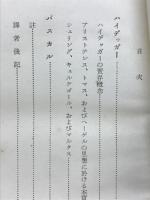 目次
ハイデッガー
ハイデッガーの世界概念
アリストテレス、トマス、およびヘーゲルの思想に於ける本質
シェリング、キェルケゴール、およびマルクス
パスカル
註
譯者後記